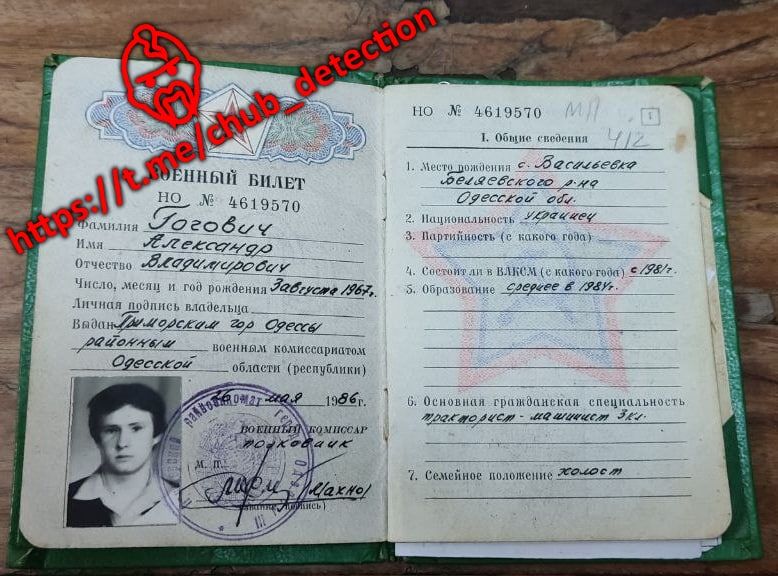 https://t.me/chub_detection
ВОЕННЫЙ БИЛЕТ
НО № 4619570
Фамилия Гогович
Имя Александр
Отчество Владимирович
Число, месяц и год рождения 3 августа 1967г.
Личная подпись владельца
Выдан Приморским гор Одессы
районным военным комиссариатом
Одесской области (республики)
26 мая 1986г.
ВОЕННЫЙ КОМИССАР
полковник
М. П.
(Махно)
(звание, подпись)
НО № 4619570 МП
1
412
I. Общие сведения
1. Место рождения с. Васильевка
Беляевского р-на
Одесской обл.
2. Национальность украинец
3. Партийность (с какого года)
4. Состоит ли в ВЛКСМ (с какого года) с 1981г.
5. Образование среднее в 1984г.
6. Основная гражданская специальность
тракторист-машинист 3кл.
7. Семейное положение холост